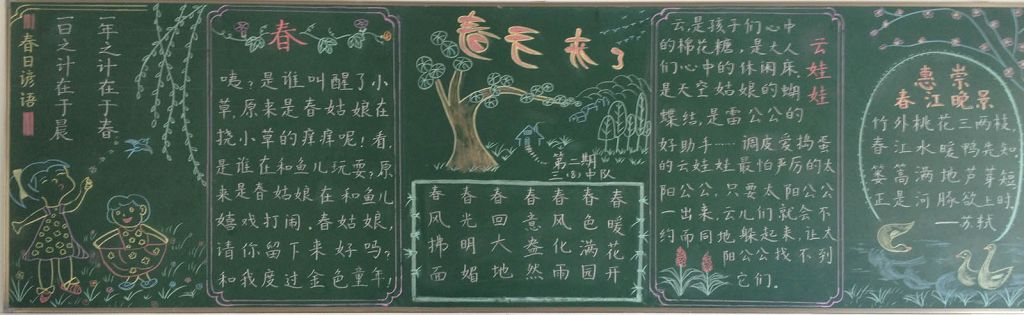 春日谚语
一年之计在于春
一日之计在于晨
春
咦?是谁叫醒了小
草,原来是春姑娘在
挠小草的痒痒呢!看,
是谁在和鱼儿玩耍?原
来是春姑娘在和鱼儿
嬉戏打闹。春姑娘,
请你留下来好吗?
和我度过金色童年!
春天来了
第二期
三(8)中队
春暖花开
春色满园
春风化雨
春意盎然
春回大地
春光明媚
春风拂面
云娃娃
云,是孩子们心中
的棉花糖,是大人
们心中的休闲床,
是天空姑娘的蝴
蝶结,是雷公公的
好助手……调皮爱捣蛋
的云娃娃最怕严厉的太
阳公公,只要太阳公公
一出来,云儿们就会不
约而同地躲起来,让太
阳公公找不到
它们。
惠崇
春江晚景
竹外桃花三两枝
春江水暖鸭先知
蒌蒿满地芦芽短
正是河豚欲上时
——苏轼